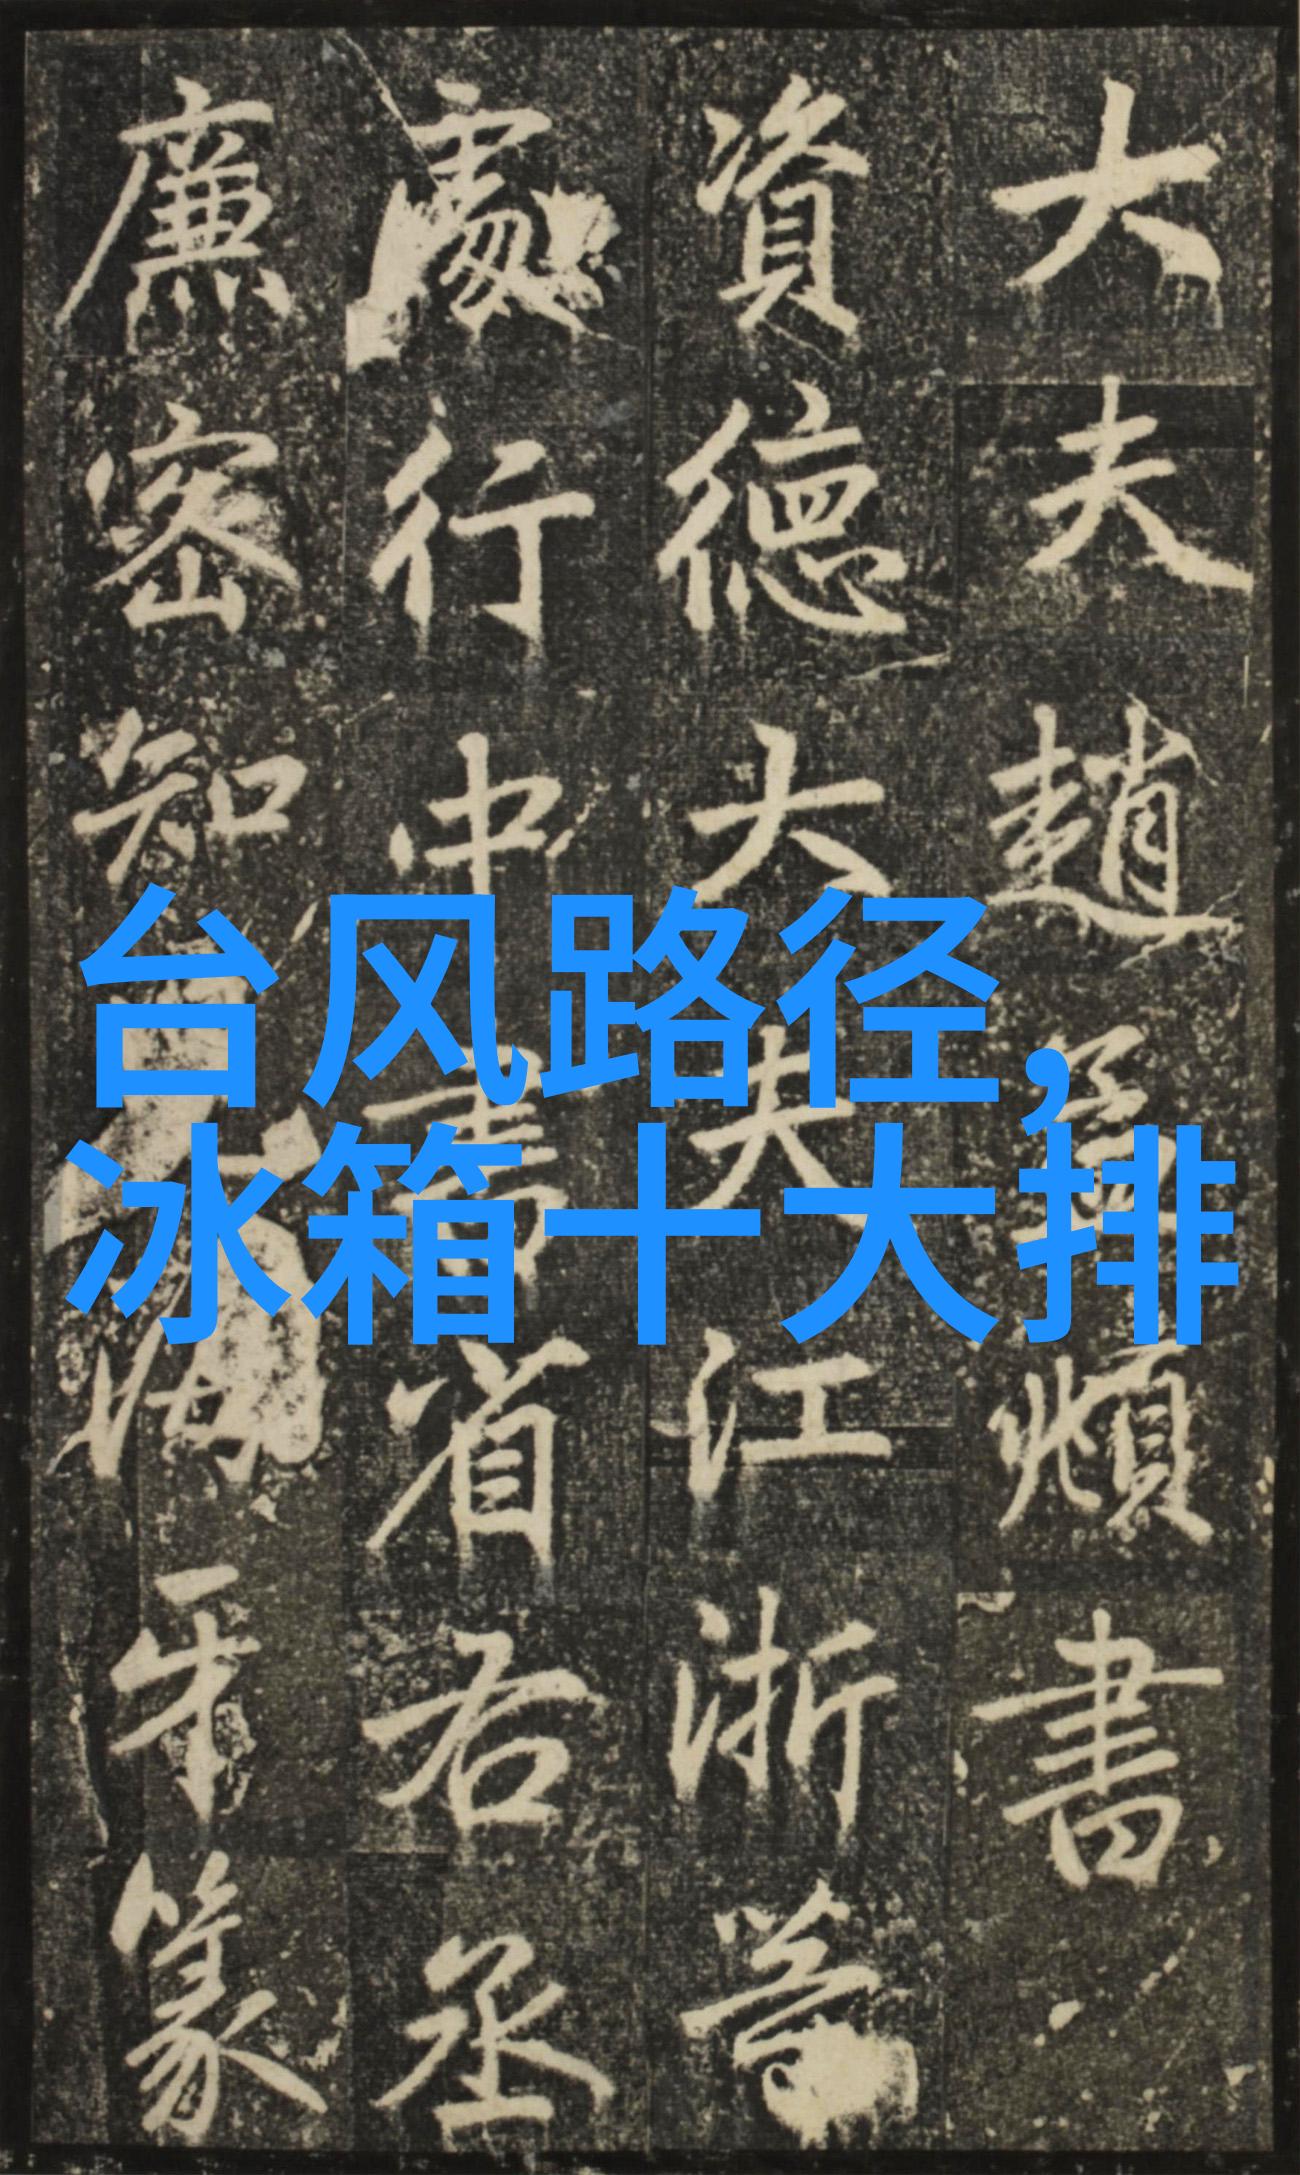 大夫趙孟頫書
資德大夫江浙等
處行中書省右丞
廉密知海牙篆
台风路径,
冰箱十大排